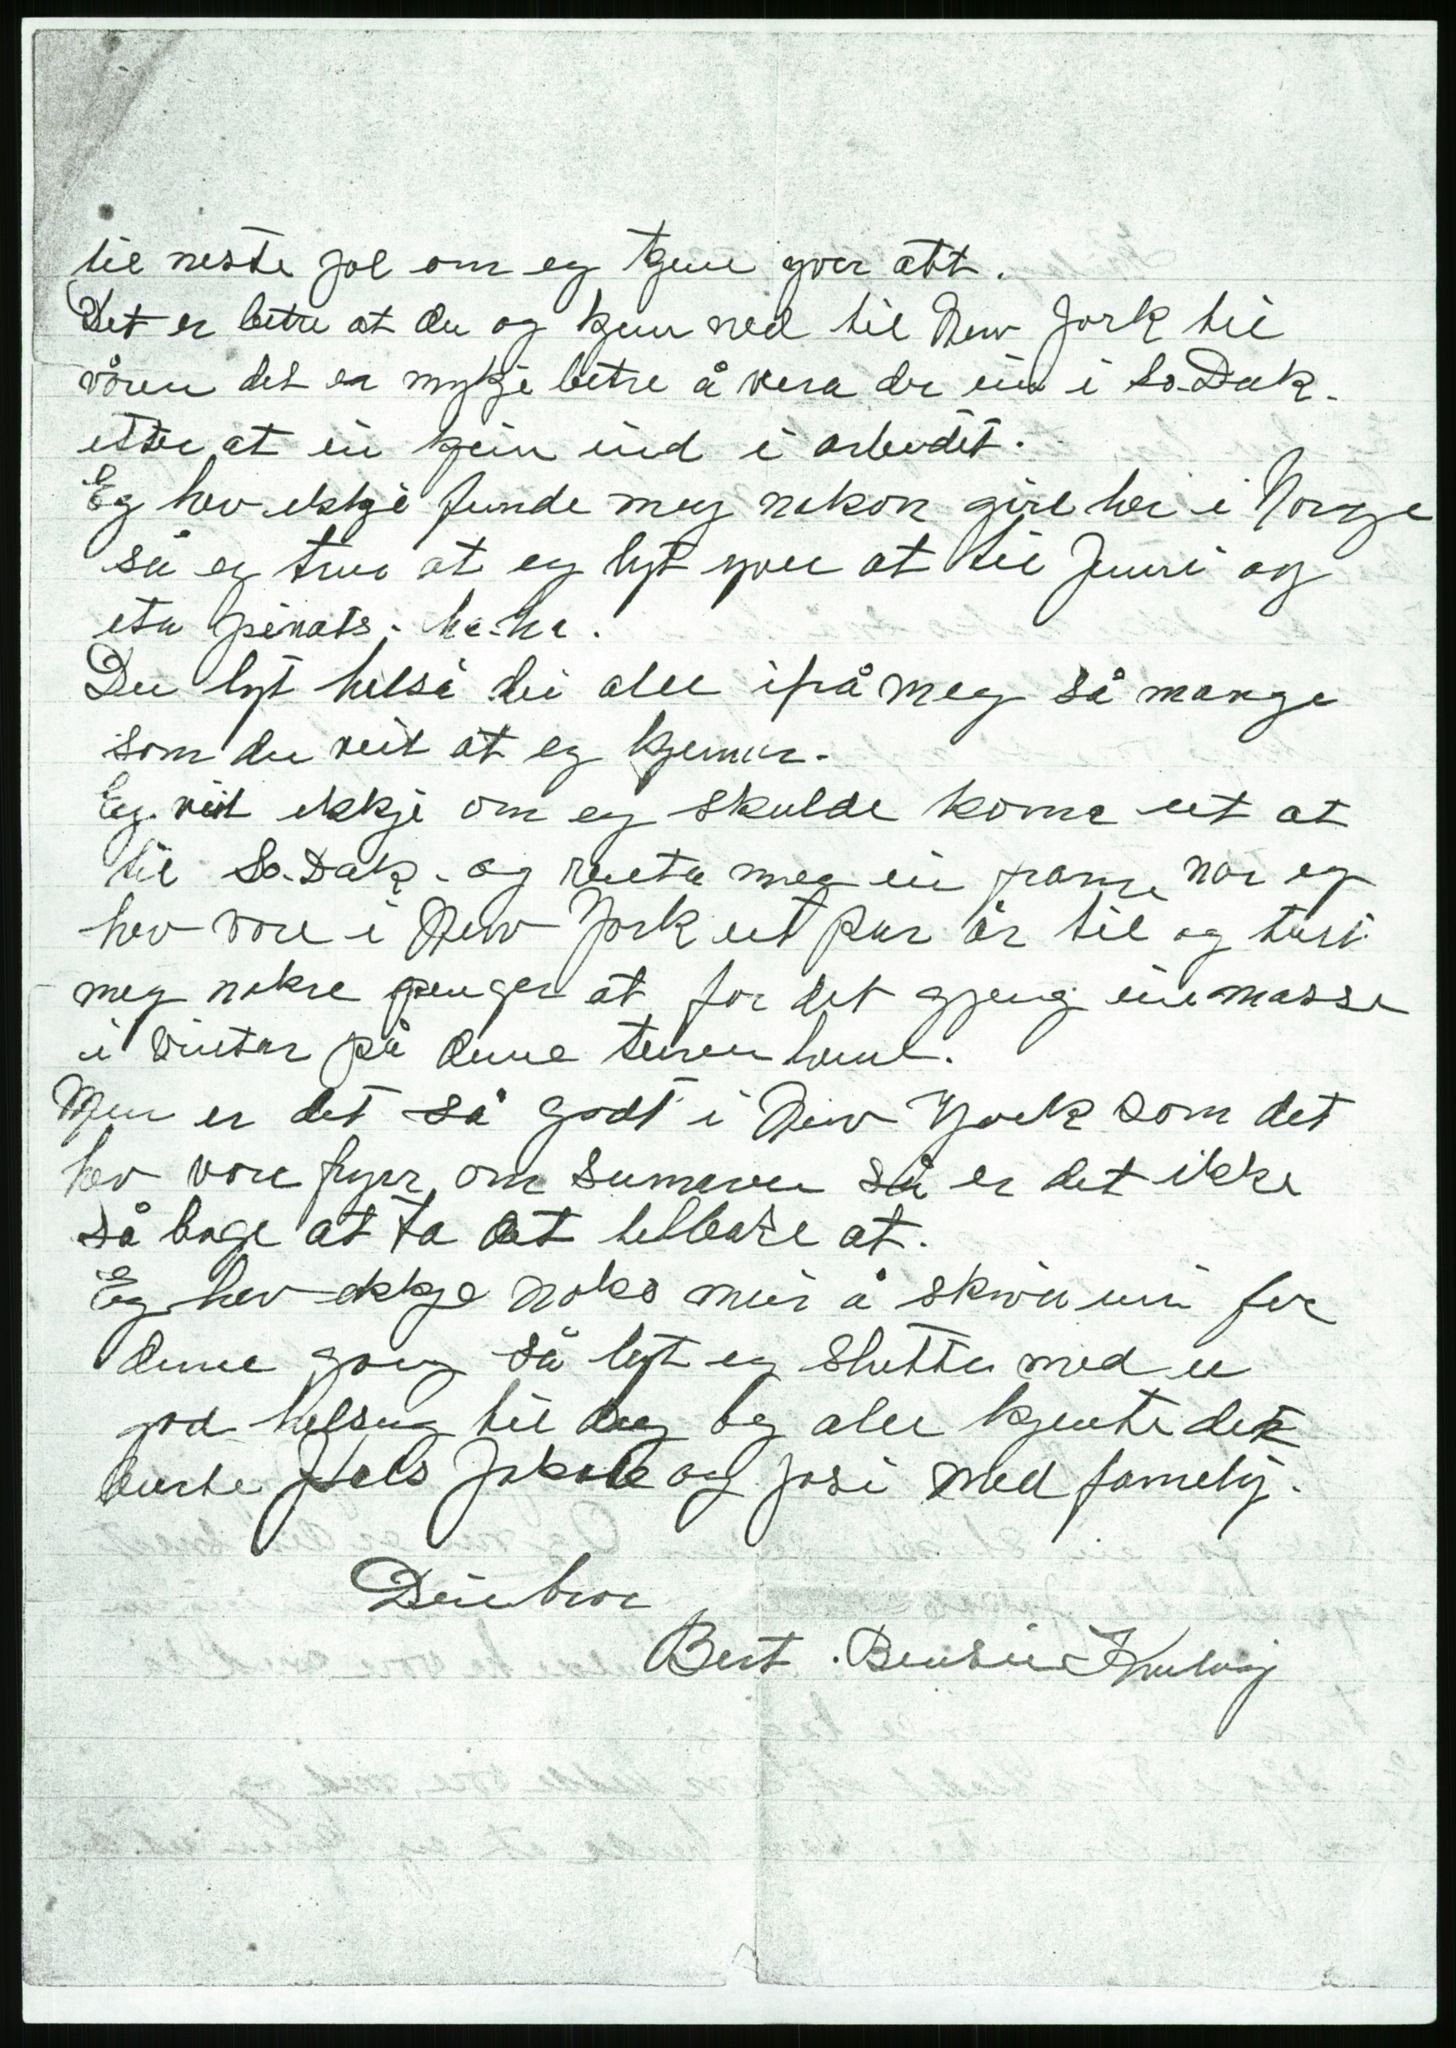 til neste jol om eg kjem yver att.
Det er betre at du og kjem ned til New Jork til
våren det er mykje betre å vera der ein i So.Dak.
etter at ein kjem ind i arbeidet.
Eg hev ikkje funde meg nokon girl her i Norge
så eg trur at eg lyt yver at til Juni og
eta pinats. ha-ha.
Du lyt helsa dei alle ifrå meg så mange
som du veit at eg kjenner.
Eg veit ikkje om eg skulde koma ut at
til So.Dak. og renta meg ein farm nar eg
hev vore i New York eit par år til og tent
meg nokre penger at for det gjeng ein masse
i vinter på denne turen heim.
Men er det så godt i New York som det
hev vore fyrr om sumaren så er det ikke
så lenge at ta det tilbake at.
Eg hev ikkje noko meir å skriva um for
denne gang så lyt eg slutta med ei
god helsing til deg og alle kjente det
Nels Jakob og Josi med famely.
Dein bror
Bert. Bensin